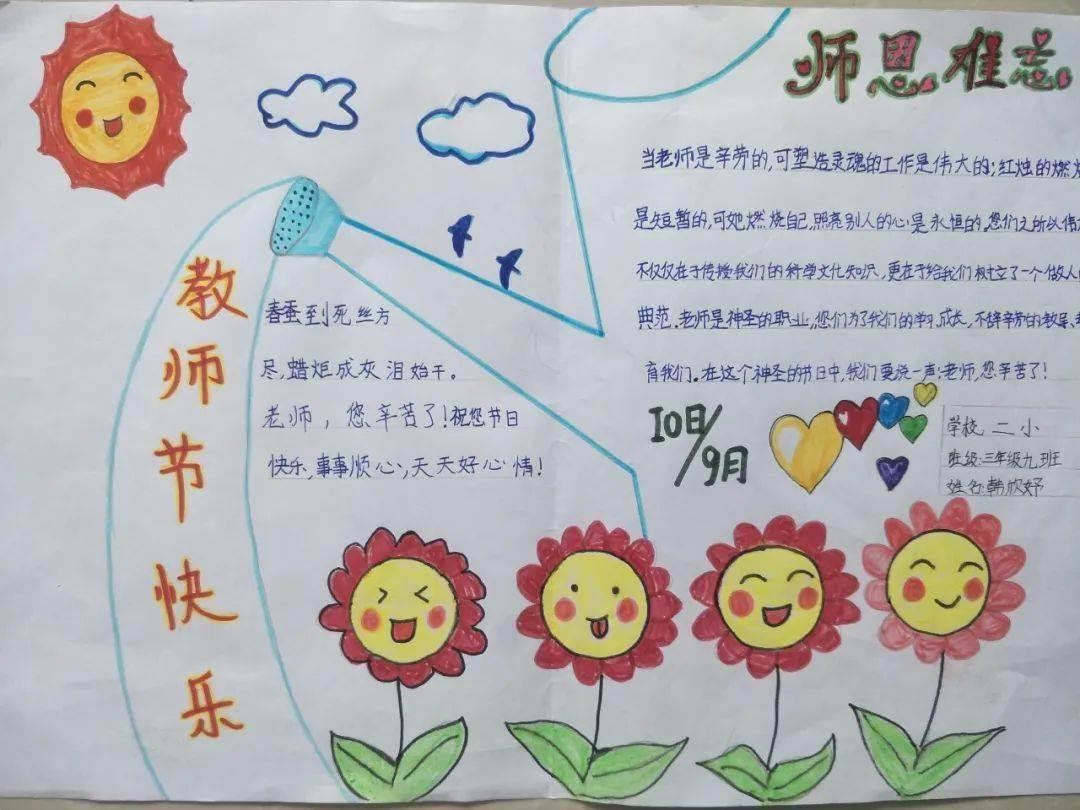 师恩难忘
当老师是辛劳的,可塑造灵魂的工作是伟大的;红烛的燃烧
是短暂的,可她燃烧自己,照亮别人的心是永恒的.您们之所以伟
不仅仅在于传授我们的科学文化知识,更在于给我们树立了一个做人的
典范.老师是神圣的职业,您们为了我们的学习.成长,不辞辛劳的教导、教
育我们.在这个神圣的节日中,我们要说一声:老师,您辛苦了!
教师节快乐
春蚕到死丝方
尽,蜡炬成灰泪始干。
老师,您辛苦了!祝您节日
快乐,事事顺心,天天好心情!
10日/9月
学校 二小
班级:三年级九班
姓名:韩欣妤